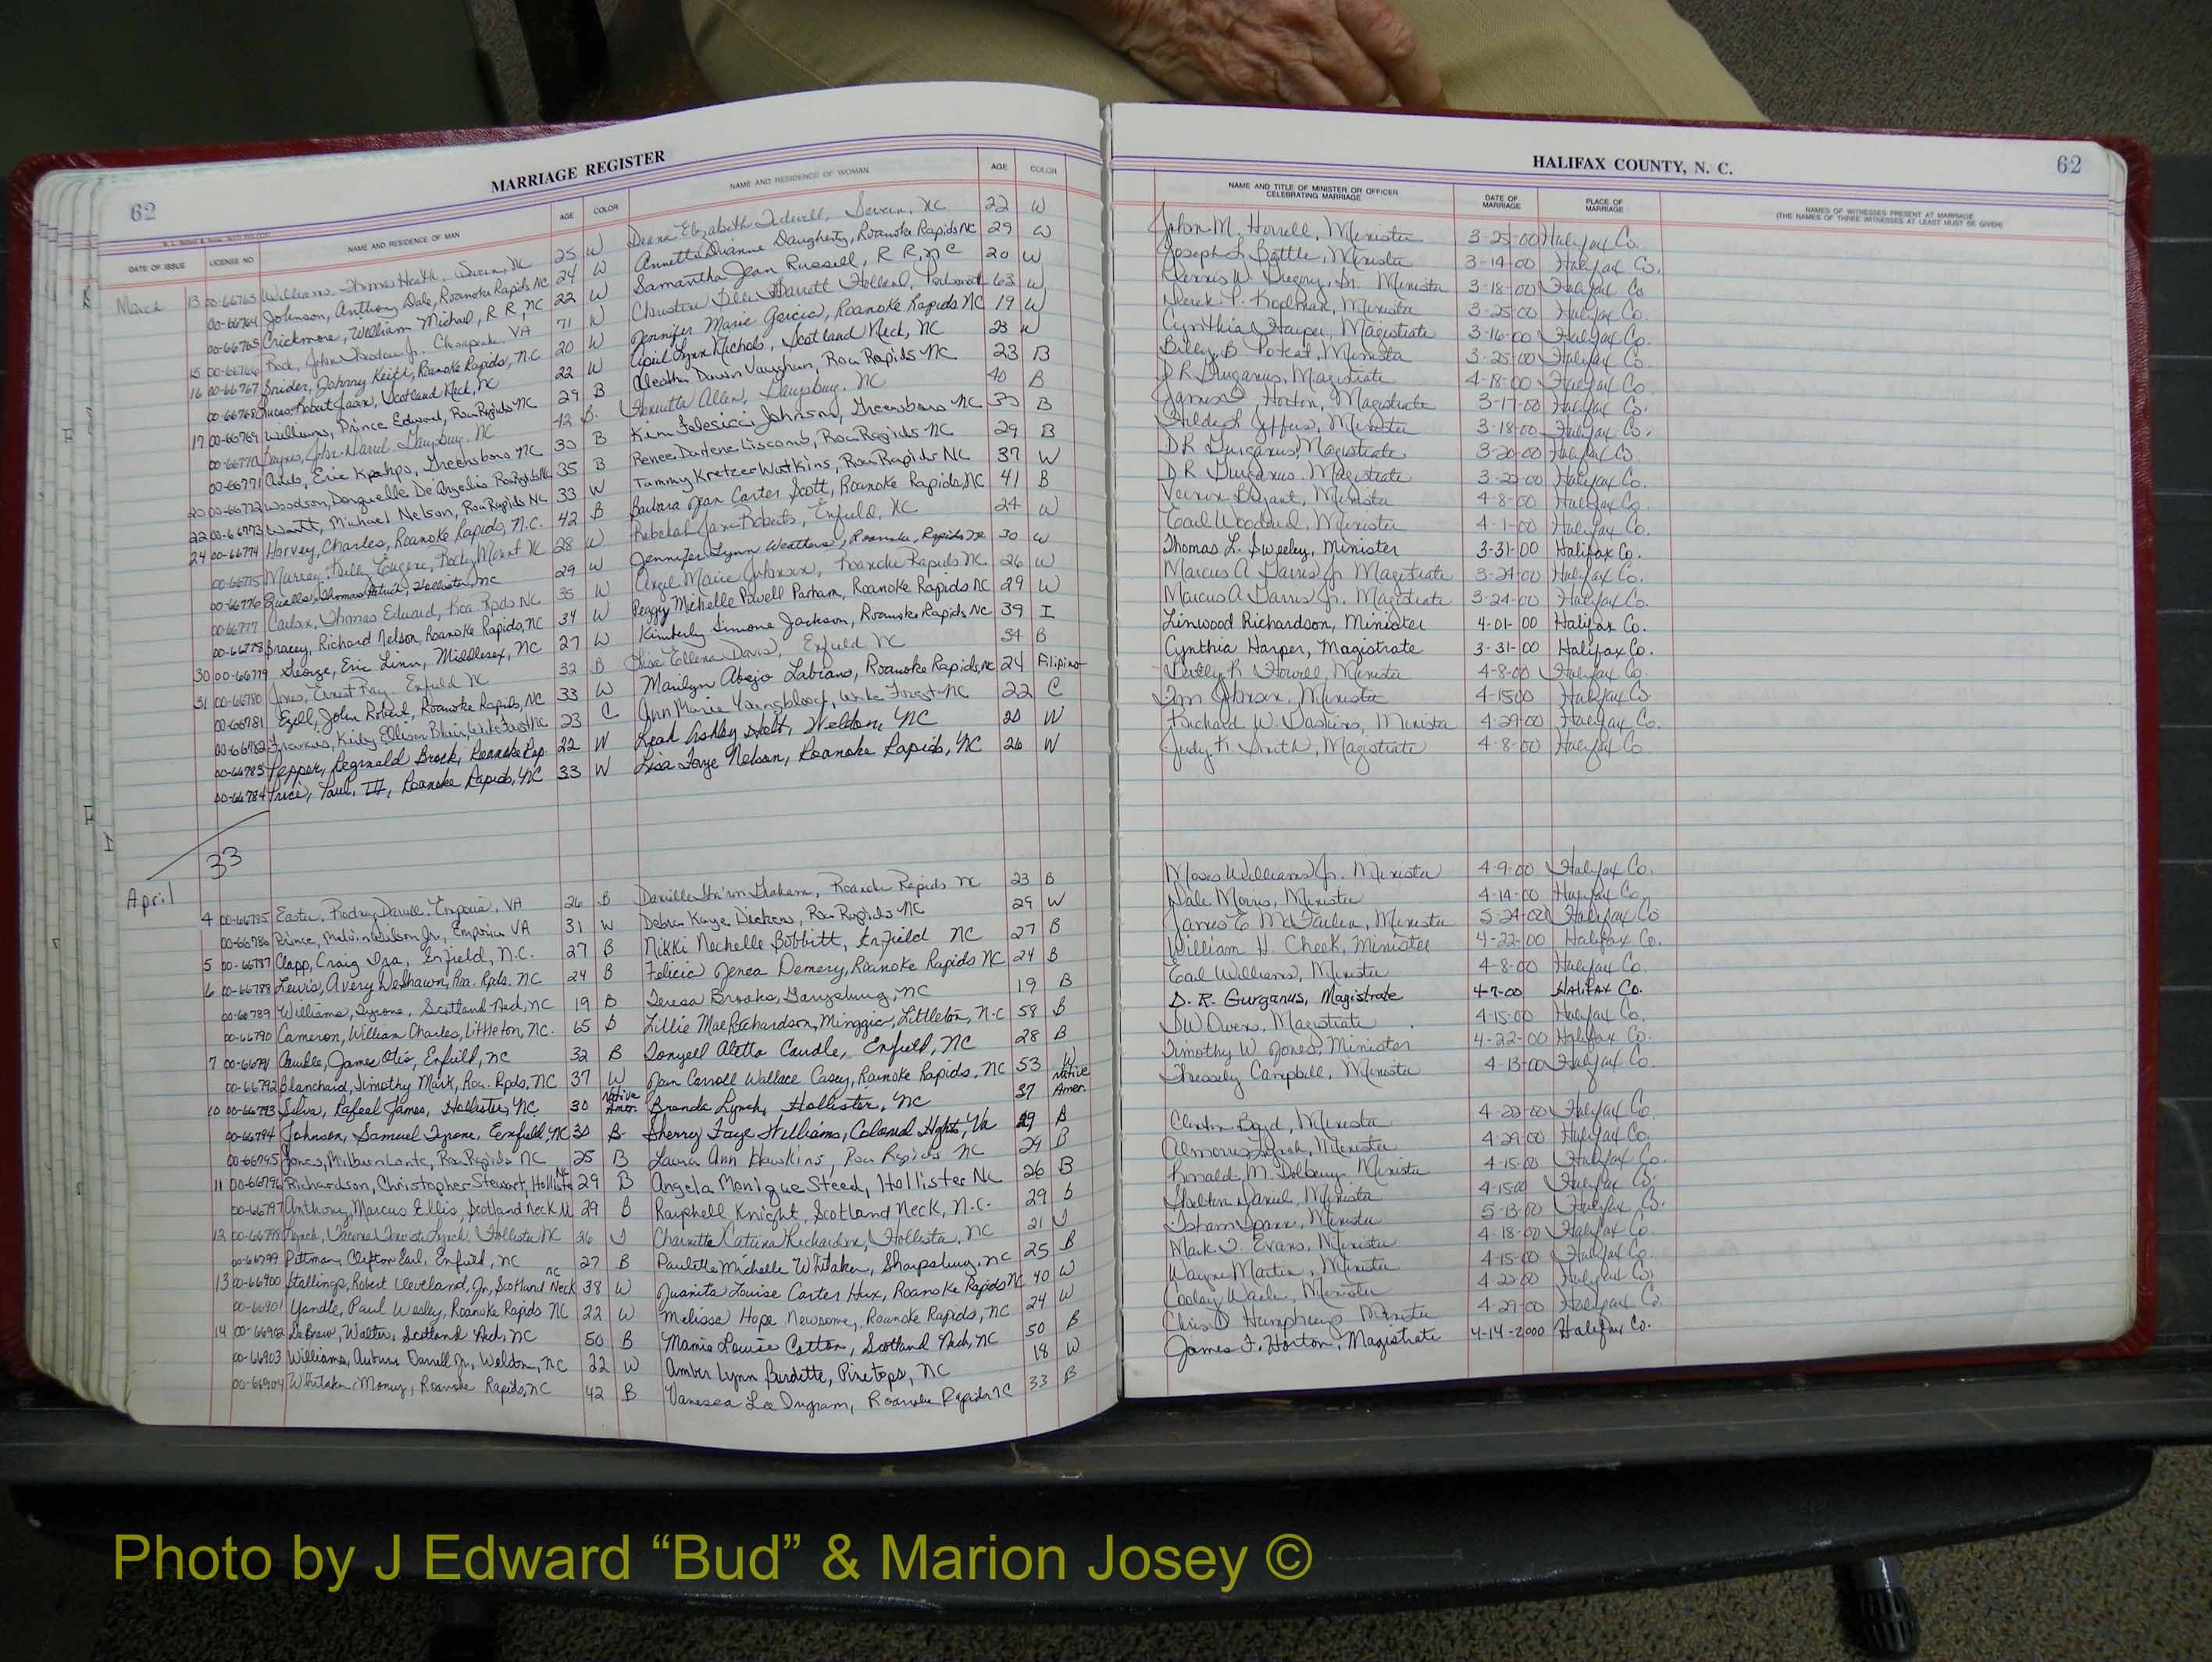 MARRIAGE REGISTER
HALIFAX COUNTY, N. C.
62
62
DATE OF ISSUE LICENSE NO. NAME AND RESIDENCE OF MAN AGE COLOR NAME AND RESIDENCE OF WOMAN AGE COLOR
NAME AND TITLE OF MINISTER OR OFFICER CELEBRATING MARRIAGE DATE OF MARRIAGE PLACE OF MARRIAGE NAMES OF WITNESSES PRESENT AT MARRIAGE (THE NAMES OF THREE WITNESSES AT LEAST MUST BE GIVEN)
March 13 00-66763 Williams, Thomas 25 W Elizabeth NC 22 W
00-66764 Johnson, Anthony Dale, Roanoke Rapids NC 24 W Annette Dianne Daughety, Roanoke Rapids NC 29 W
00-66765 Crickmore, William Michael, R R, NC 22 W Samantha Jean Russell, R R, NC 20 W
15 00-66766 VA 71 W 63 W
16 00-66767 Snider, Johnny Keith, Roanoke Rapids, N.C. 20 W Jennifer Marie Garcia, Roanoke Rapids NC 19 W
00-66768 Robert Jason, Scotland Neck, NC 22 W April Lynn Nichols, Scotland Neck, NC 23 W
17 00-66769 Williams, Prince Edward, Roa Rapids NC 29 B Dawin Vaughan, Roa Rapids NC 23 B
00-66770 Gaysburg, NC 42 B Allen, Gaysburg, NC 40 B
00-66771 Eric Greensboro NC 33 B Kim Johnson, Greensboro NC B
20 00-66772 Woodson, De'Angelio 35 B Renee Darlene Liscomb, Roa Rapids NC 29 B
22 00-66773 Watt, Michael Nelson, Roa Rapids NC 33 W Tammy Kretzer Watkins, Roa Rapids NC 37 W
24 00-66774 Harvey, Charles, Roanoke Rapids, N.C. 42 B Barbara Jean Carter Scott, Roanoke Rapids, NC 41 B
00-66775 Murray, Billy Eugene, Rocky Mount NC 28 W Rebekah Jane Roberts, Enfield, NC 24 W
00-66776 Qualls, Thomas Patrick, Hollister, NC 29 W Jennifer Lynn Roanoke Rapids 30 W
00-66777 Thomas Edward, Roa Rpds NC 35 W Angel Marie Johnson, Roanoke Rapids NC 26 W
00-66778 Bracey, Richard Nelson, Roanoke Rapids, NC 34 W Peggy Michelle Powell Parham, Roanoke Rapids NC 29 W
30 00-66779 George, Eric Linn, Middlesex, NC 27 W Kimberly Simone Jackson, Roanoke Rapids NC 39 I
31 00-66780 Jones, Ernest Ray, Enfield NC 32 B Ellena Davis, Enfield NC 34 B
00-66781 Ezell, John Robert, Roanoke Rapids, NC 33 W Marilyn Abejo Labiano, Roanoke Rapids, NC 24 Filipino
00-66782 Kirby Ellison Blair, Wake Forest NC 23 C Ann Marie Youngblood, Wake Forest NC 22 C
00-66783 Pepper, Reginald Brock, Roanoke Rap. 22 W Leah Ashley Holt, Weldon, NC 20 W
00-66784 Price, Paul, III, Roanoke Rapids, NC 33 W Lisa Faye Nelson, Roanoke Rapids, NC 26 W
33
April
4 00-66785 Easter, Rodney Darell, Emporia, VA 26 B Danielle Graham, Roanoke Rapids NC 23 B
00-66786 Prince, Melvin Wilson Jr., Emporia VA 31 W Debra Kaye Dickens, Roa Rapids NC 29 W
5 00-66787 Clapp, Craig Ira, Enfield, N.C. 27 B Nikki Nechelle Bobbitt, Enfield NC 27 B
6 00-66788 Lewis, Avery DeShawn, Roa. Rpds. NC 24 B Felicia Jenea Demery, Roanoke Rapids NC 24 B
00-66789 Williams, Tyrone, Scotland Neck, NC 19 B Teresa Brooks, Garysburg, NC 19 B
00-66790 Cameron, William Charles, Littleton, NC. 65 B Lillie Mae Richardson, Minggia, Littleton, N.C 58 B
7 00-66791 Caudle, James Otis, Enfield, NC 32 B Sonyell Aletta Caudle, Enfield, NC 28 B
00-66792 Blanchard, Timothy Mark, Roa. Rpds, NC 37 W Jean Carroll Wallace Casey, Roanoke Rapids, NC 53 W
10 00-66793 Silva, Rafeal James, Hollister, NC 30 Native Amer. Brenda Lynch, Hollister, NC 37 Native Amer.
00-66794 Johnson, Samuel Tyrone, Enfield, NC 30 B Sherry Faye Williams, Colonial Hghts, Va 29 B
00-66795 Jones, Milburn Lonte, Roa Rapids NC 25 B Laura Ann Hawkins, Roa Rapids NC 29 B
11 00-66796 Richardson, Christopher Stewart, Hollister NC 29 B Angela Monique Steed, Hollister NC 26 B
00-66797 Anthony, Marcus Ellis, Scotland Neck 29 B Rayphell Knight, Scotland Neck, N.C. 29 B
12 00-66798 Lynch, Hollister NC 26 Charnette Catrina Richardson, Hollister, NC 21
00-66799 Pittman, Clifton Earl, Enfield, NC 27 B Paulette Michelle Whitaker, Sharpsburg, NC 25 B
13 00-66900 Stallings, Robert Cleveland, Jr, Scotland Neck NC 38 W Juanita Louise Carter Hux, Roanoke Rapids NC 40 W
00-66901 Yandle, Paul Wesley, Roanoke Rapids NC 22 W Melissa Hope Newsome, Roanoke Rapids, NC 24 W
14 00-66902 DeBrew, Walter, Scotland Neck, NC 50 B Mamie Louise Cotton, Scotland Neck, NC 50 B
00-66903 Williams, Auburn Darrell Jr, Weldon, NC 22 W Amber Lynn Burdette, Pinetops, NC 18 W
00-66904 Whitaker, Money, Roanoke Rapids, NC 42 B Vanessa Lee Ingram, Roanoke Rapids NC 33 B
John M. Harrell, Minister 3-25-00 Halifax Co.
Joseph L. Battle, Minister 3-14-00 Halifax Co.
Dennis W. Gregory, Sr. Minister 3-18-00 Halifax Co
Derek P. Minister 3-25-00 Halifax Co.
Cynthia Harper, Magistrate 3-16-00 Halifax Co.
Billy B Poteat, Minister 3-25-00 Halifax Co.
D R Gurganus, Magistrate 4-18-00 Halifax Co.
James Horton, Magistrate 3-17-00 Halifax Co.
Hilda L Jeffers, Minister 3-18-00 Halifax Co.
D R Gurganus, Magistrate 3-20-00 Halifax Co.
D R Gurganus, Magistrate 3-22-00 Halifax Co.
Bryant, Minister 4-8-00 Halifax Co.
Earl Woodard, Minister 4-1-00 Halifax Co.
Thomas L. Sweeley, Minister 3-31-00 Halifax Co.
Marcus A Jr Magistrate 3-24-00 Halifax Co.
Marcus A Jr. Magistrate 3-24-00 Halifax Co.
Linwood Richardson, Minister 4-01-00 Halifax Co.
Cynthia Harper, Magistrate 3-31-00 Halifax Co.
R. Howell, Minister 4-8-00 Halifax Co.
Jim Johnson, Minister 4-15-00 Halifax Co.
Richard W. Minister 4-29-00 Halifax Co.
Judy K Smith, Magistrate 4-8-00 Halifax Co
Moses Williams Jr. Minister 4-9-00 Halifax Co.
Dale Morris, Minister 4-14-00 Halifax Co.
James E. McFaden, Minister 5-24-00 Halifax Co
William H. Cheek, Minister 4-22-00 Halifax Co.
Earl Williams, Minister 4-8-00 Halifax Co.
D. R. Gurganus, Magistrate 4-7-00 HALIFAX Co.
Owens, Magistrate 4-15-00 Halifax Co.
Timothy W. Jones, Minister 4-22-00 Halifax Co.
Campbell, Minister 4-13-00 Halifax Co.
Clinton Boyd, Minister 4-22-00 Halifax Co.
Lynch, Minister 4-29-00 Halifax Co.
Ronald M. Minister 4-15-00 Halifax Co.
Shelton Daniel, Minister 4-15-00 Halifax Co.
Isham Minister 5-13-00 Halifax Co.
Mark Evans, Minister 4-18-00 Halifax Co.
Wayne Martin, Minister 4-15-00 Halifax Co.
Cooley Minister 4-22-00 Halifax Co.
Chris D Humphreys Minister 4-29-00 Halifax Co.
James F. Horton, Magistrate 4-14-2000 Halifax Co.
Photo by J Edward “Bud” & Marion Josey ©